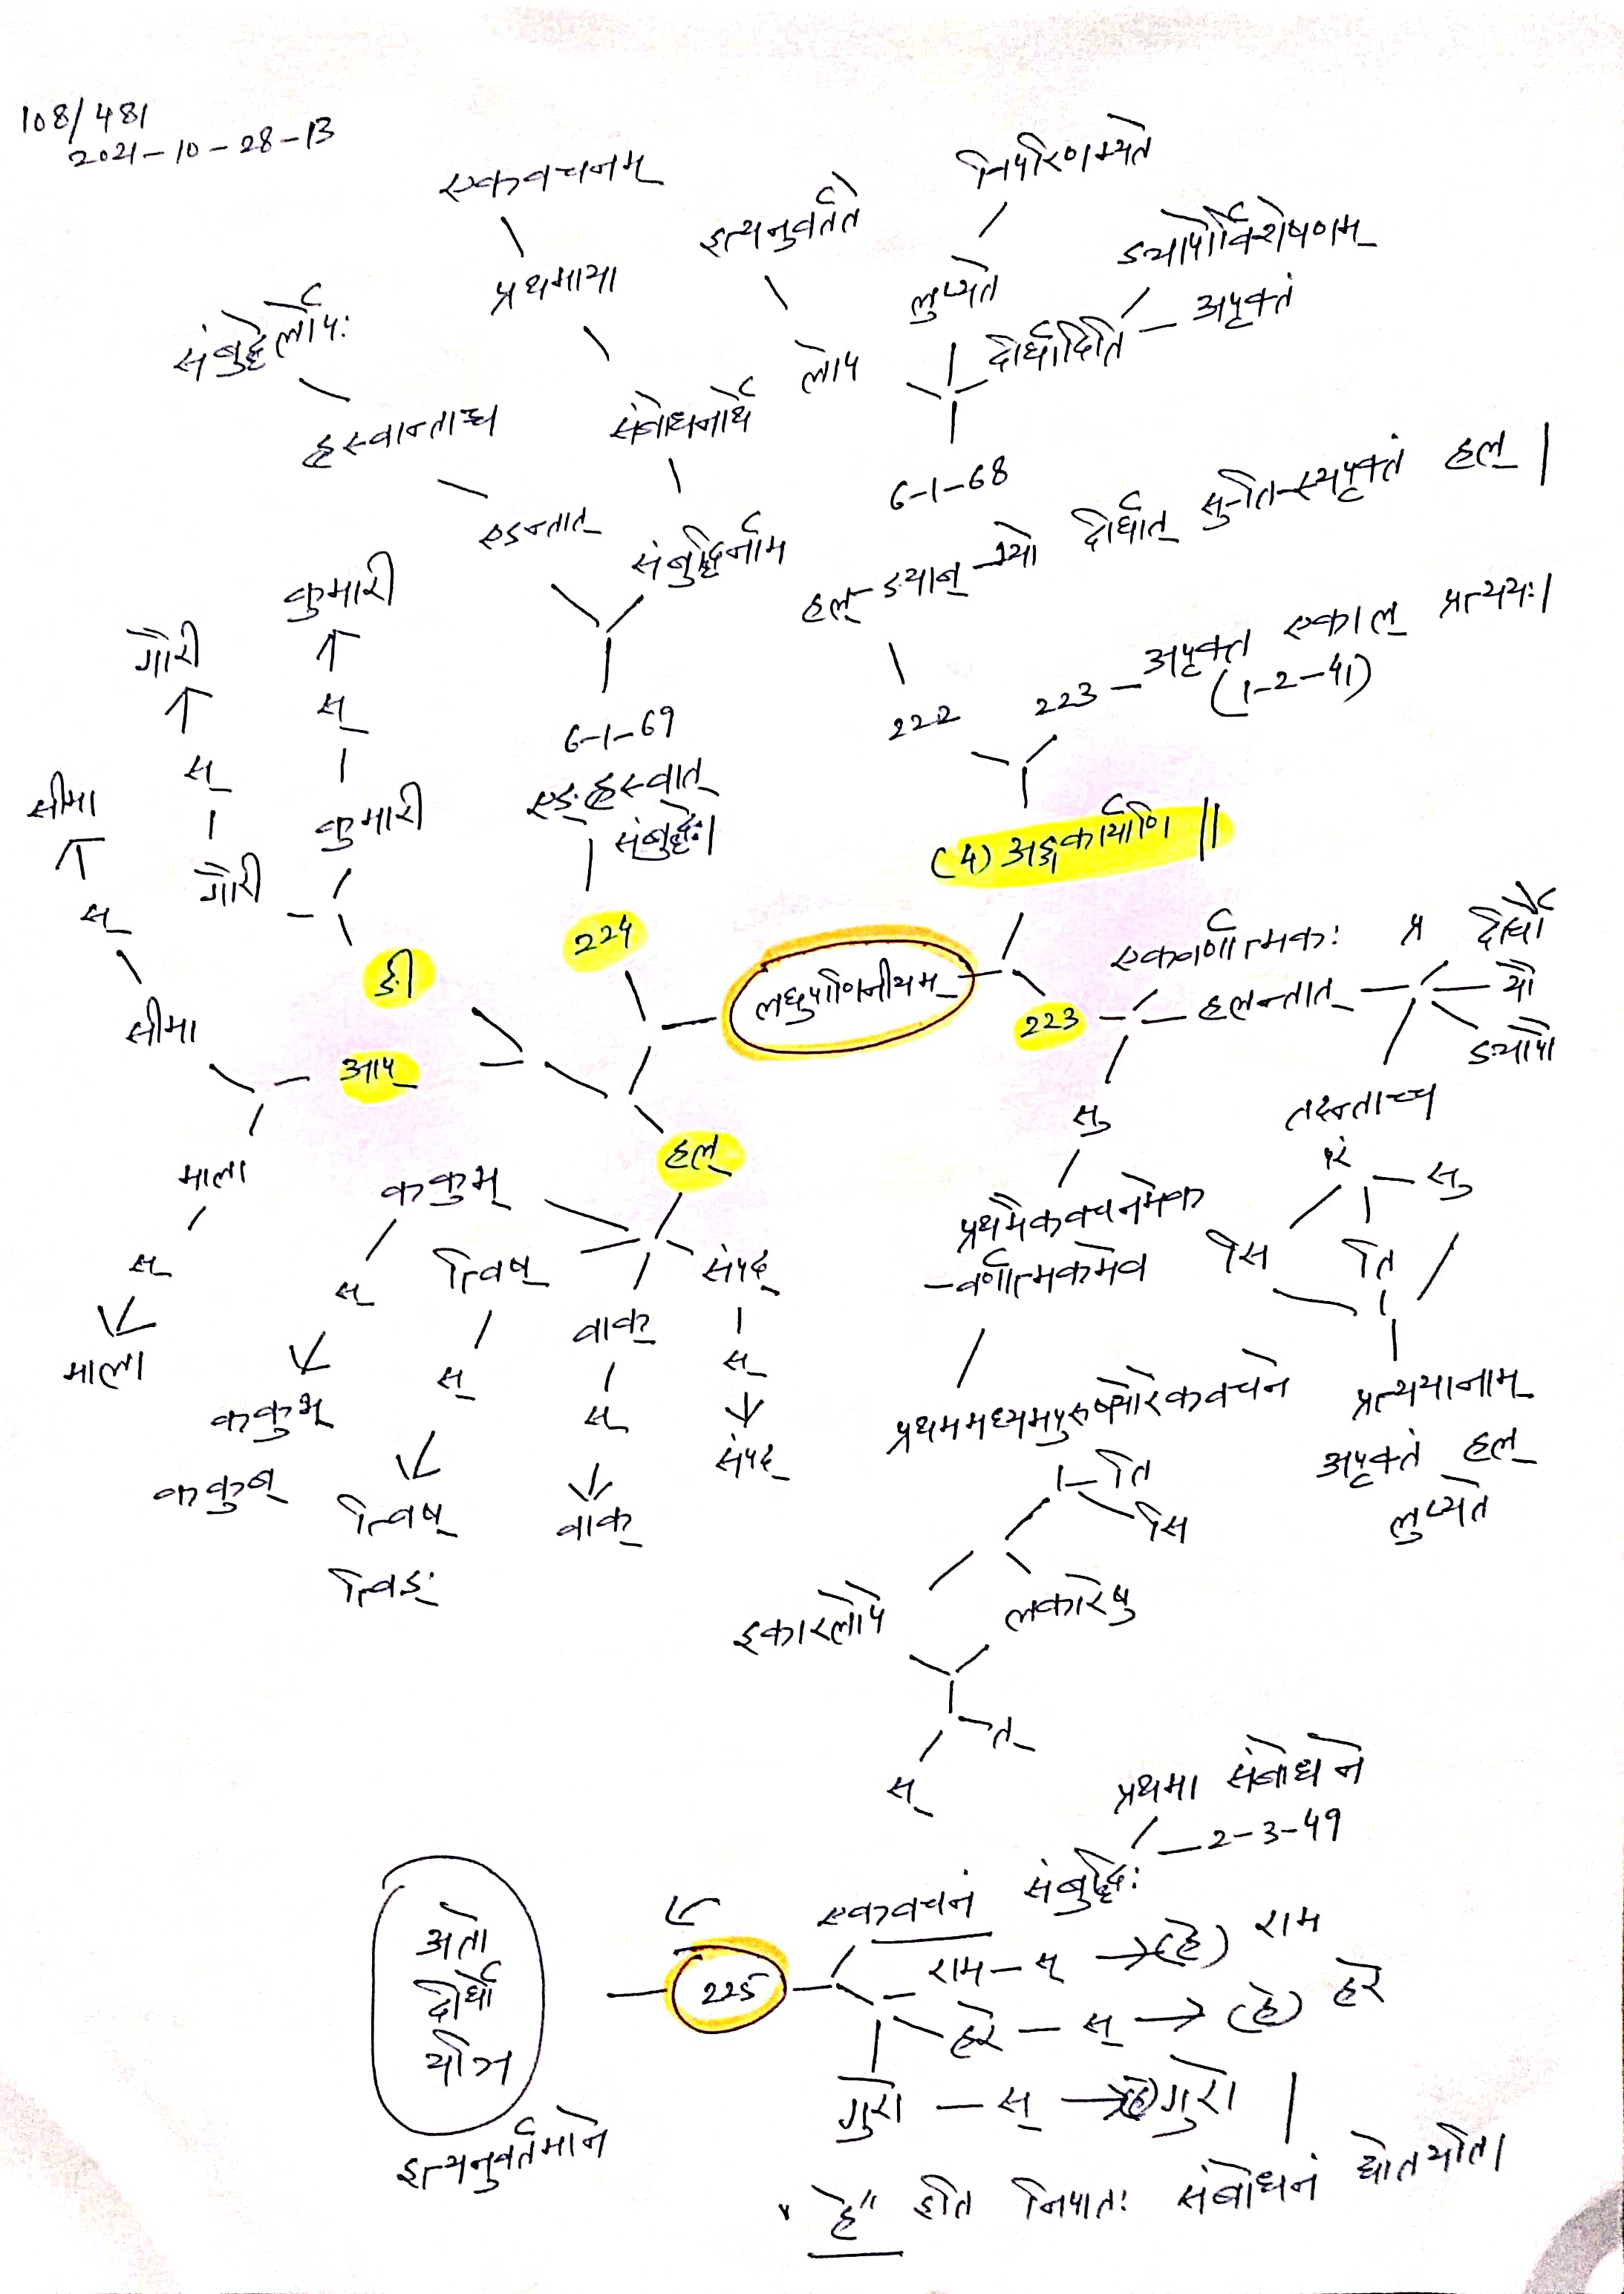 108/481
2021-10-28-13
एकवचनम्
प्रथमाया
संबोधनार्थे
संबुद्धिर्नाम
इत्यनुवर्तते
लोप
विपरिणम्यते
लुप्यते
ङ्यापोर्विशेषणम्
दीर्घादिति — अपृक्तं
6-1-68
हल्-ङ्याब्-भ्यो दीर्घात् सु-ति-स्यपृक्तं हल् |
222
223 — अपृक्त एकाल् प्रत्ययः|
(1-2-41)
(4) अङ्गकार्याणि ||
संबुद्धेर्लोपः
ह्रस्वान्ताच्च
एङन्तात्
6-1-69
एङ्ह्रस्वात्
संबुद्धेः|
224
कुमारी
स्
कुमारी
गौरी
स्
गौरी
ङी
सीमा
स्
सीमा
आप्
माला
स्
माला
लघुपाणिनीयम्
हल्
ककुभ्
स्
ककुभ्
ककुब्
त्विष्
स्
त्विष्
त्विड्
वाक्
स्
वाक्
संपद्
स्
संपद्
223
एकवर्णात्मकः
हलन्तात्
प्र दीर्घौ
यौ
ङ्यापौ
तदन्ताच्च
परं
सु
ति
सि
प्रत्ययानाम्
अपृक्तं हल्
लुप्यते
सु
प्रथमैकवचनमेक
-वर्णात्मकमेव
प्रथममध्यमपुरुषयोरेकवचने
ति
सि
इकारलोपे
लकारेषु
त्
स्
प्रथमा संबोधने
2-3-49
एकवचनं संबुद्धिः
225
राम — स् → (हे) राम
हरे — स् → (हे) हरे
गुरो — स् → (हे) गुरो |
अतो
दीर्घो
यञि
इत्यनुवर्तमाने
"हे" इति निपातः संबोधनं द्योतयति।